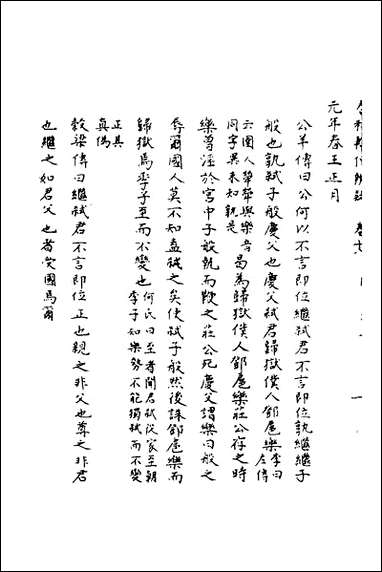 元年春王正月
公羊傳曰公何以不言即位繼弒君不言即位孰繼繼子
般也孰弒子般慶父也慶父弒君歸獄僕人鄧扈樂李曰左傳
云圉人犖犖與樂音同字異未知孰是曷為歸獄僕人鄧扈樂莊公存之時
樂曾淫於宮中子般執而鞭之莊公死慶父謂樂曰般之
辱爾國人莫不知盍弒之矣使弒子般然後誅鄧扈樂而
歸獄焉季子至而不變也何氏曰至者聞君弒從家至朝季子知樂勢不能獨弒而不變
正其真偽
穀梁傳曰繼弒君不言即位正也親之非父也尊之非君
也繼之如君父也者受國焉爾